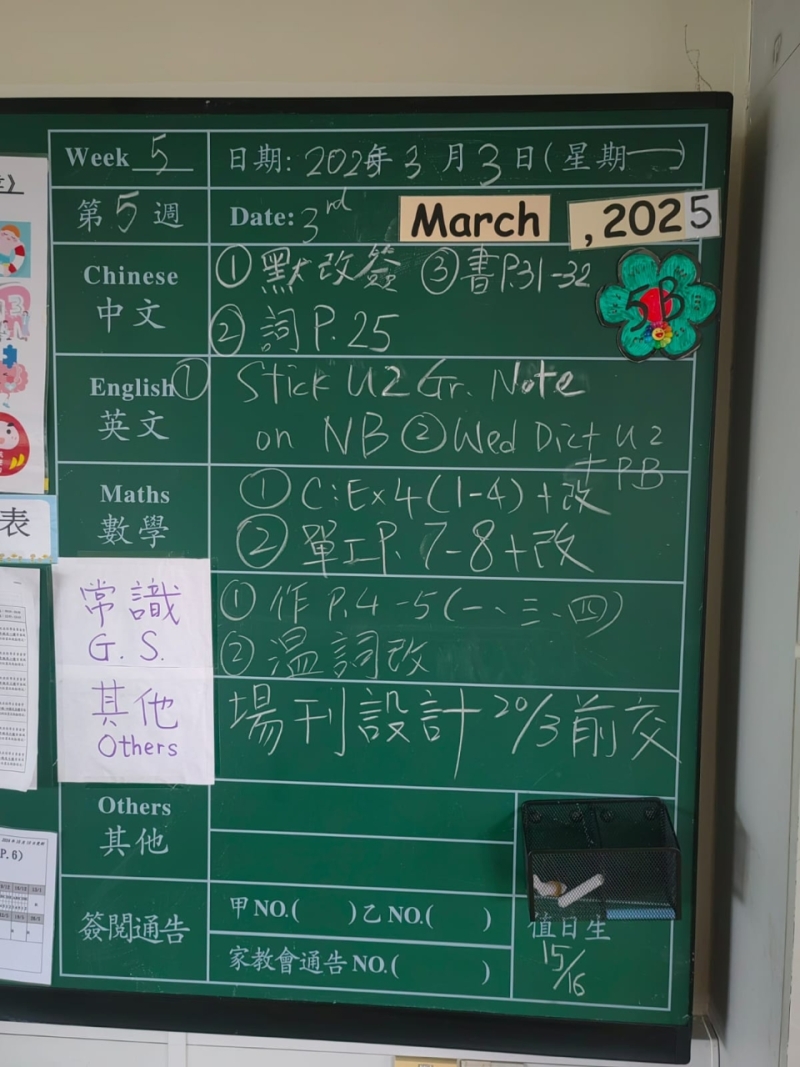 Week 5
日期: 2025年3月3日(星期一)
第5週
Date: 3rd March , 2025
Chinese
中文
① 默改簽 ③書P.31-32
② 詞P.25
5B
English
英文
① Stick U2 Gr. Note
on NB ② Wed Dict U2
+ PB
Maths
數學
① C:Ex4(1-4)+改
② 單工P. 7-8+改
常識
G.S.
① 作P.4-5(一、三、四)
② 溫詞改
其他
Others
場刊設計 20/3前交
Others
其他
簽閱通告
甲NO.( )乙NO.( )
家教會通告NO.( )
值日生
15/16
表
P.6)